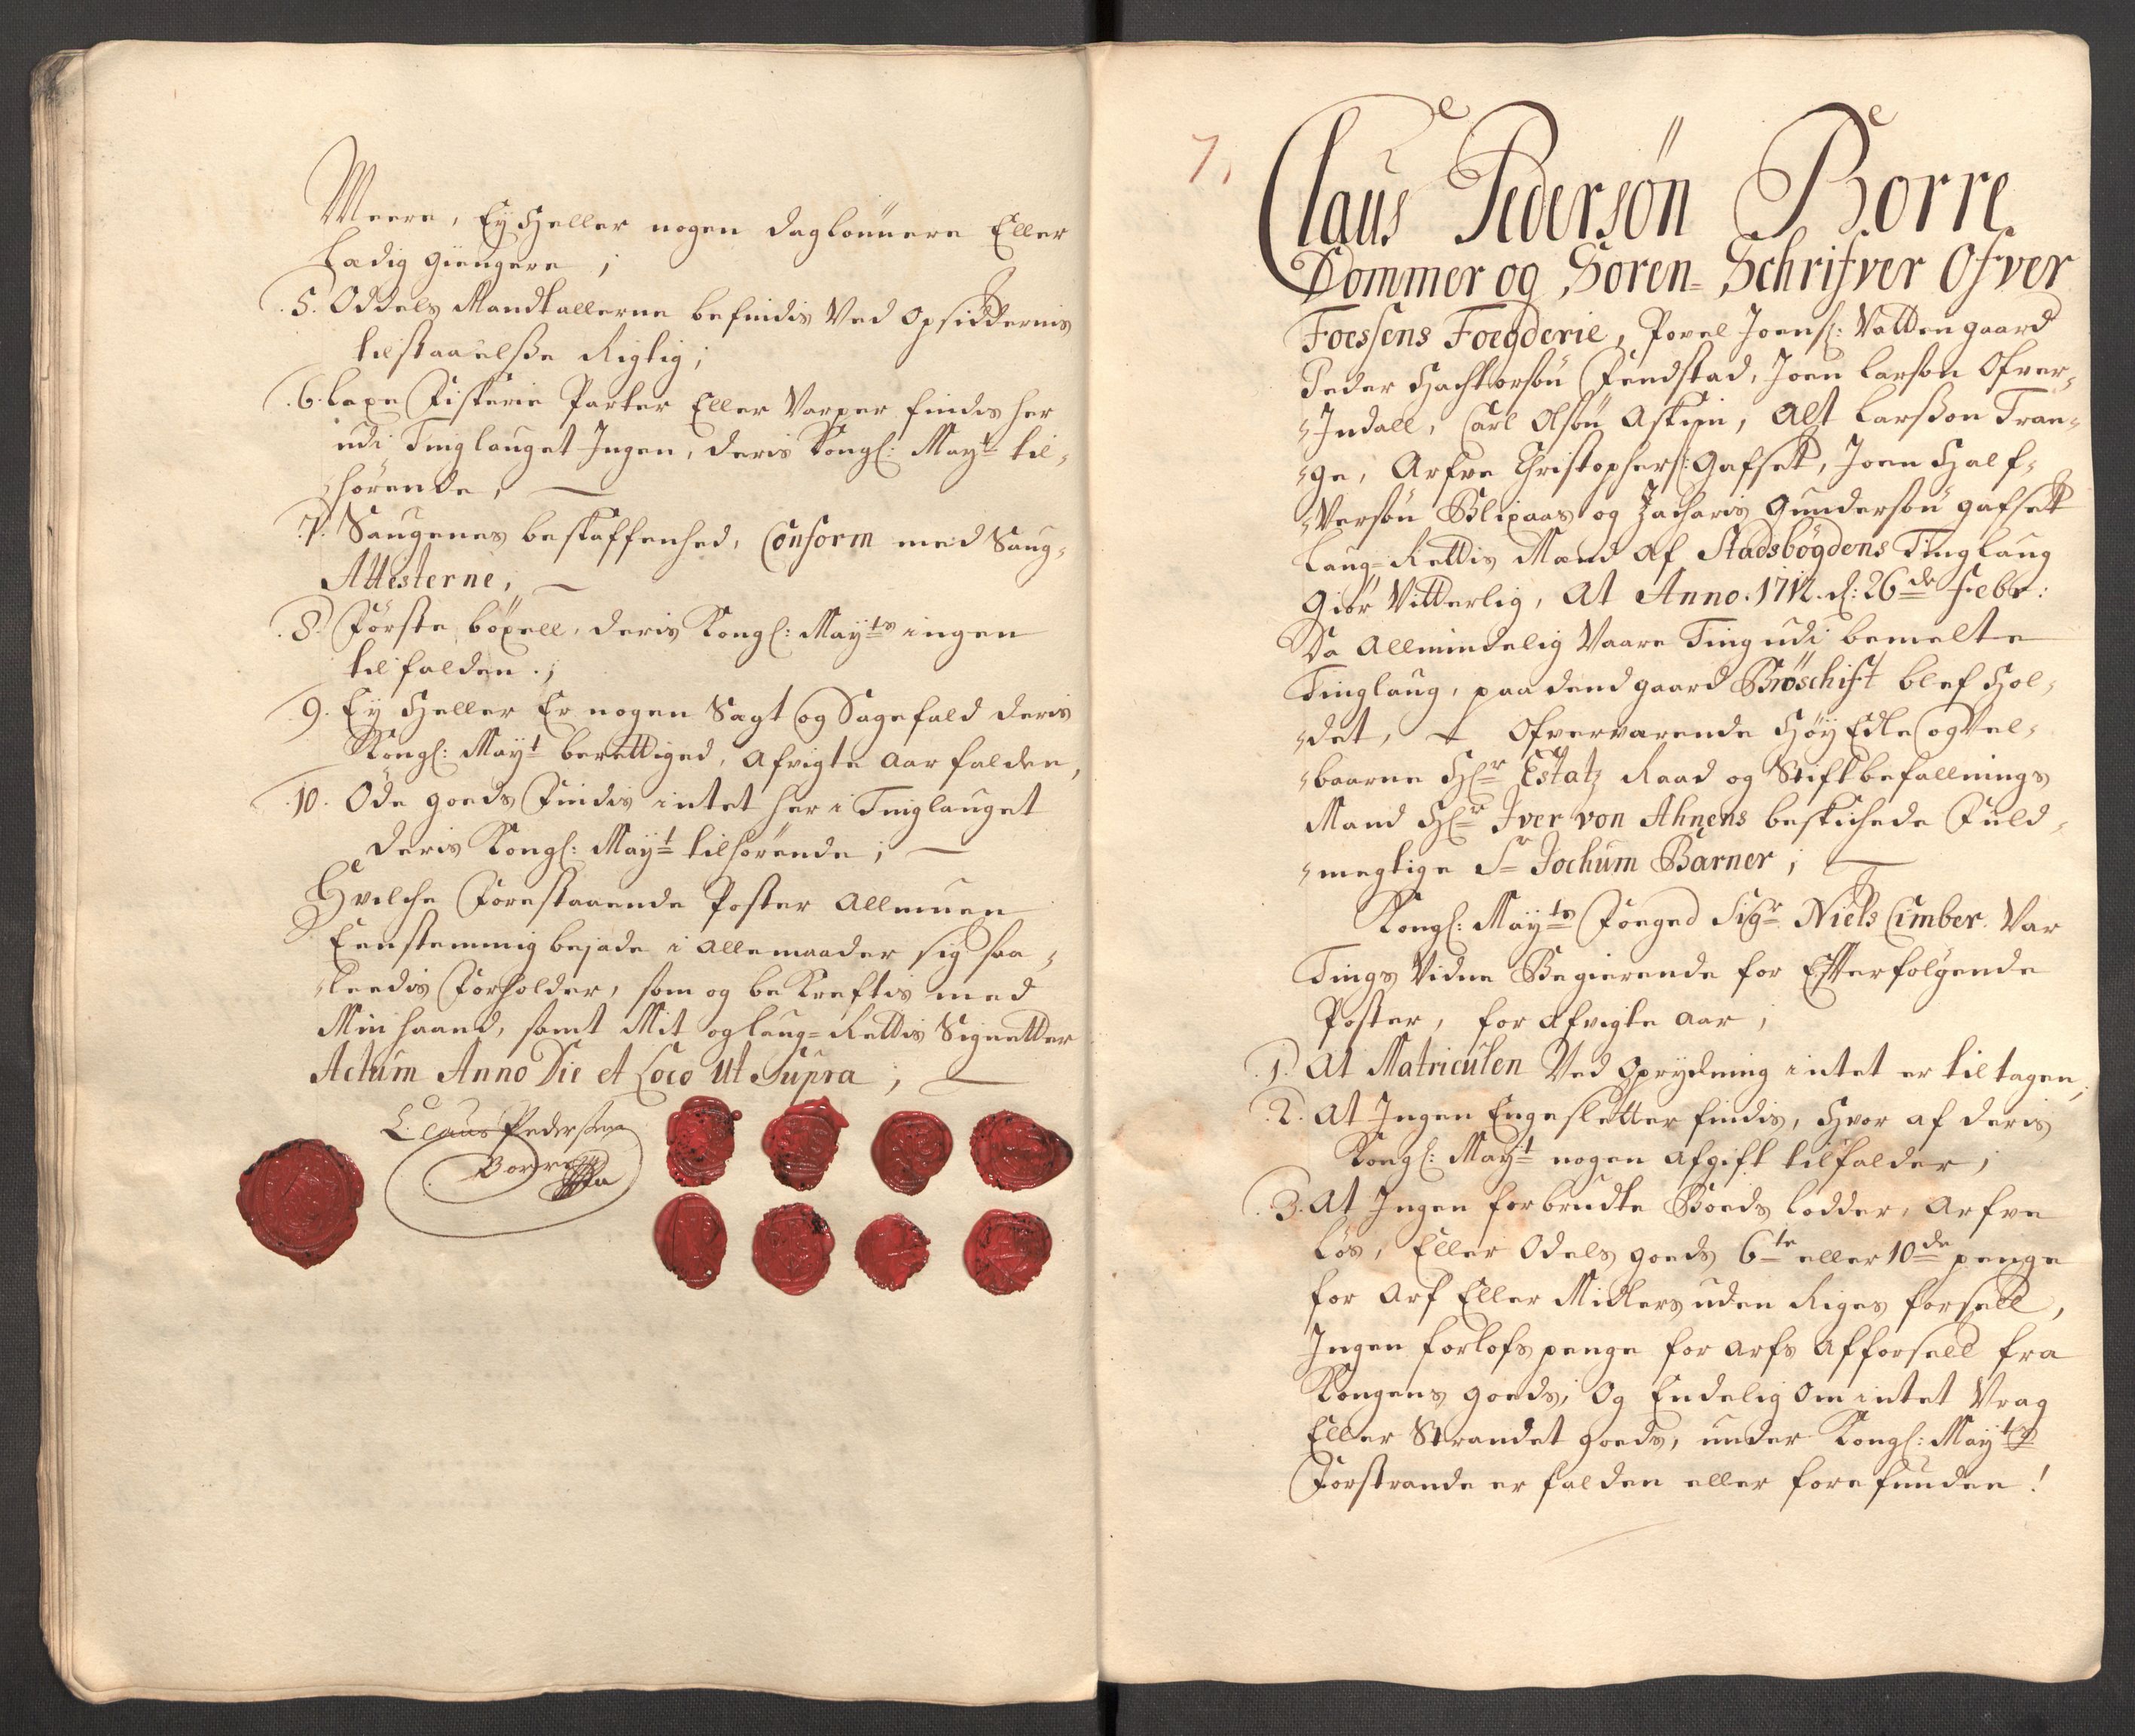 Meere, Ey Heller nogen daglönnere Eller
Ladig giengere;
5. Oddels Mandtallerne befindis Ved Opsiddernis
tilstaaelsse Rigtig;
6. Laxe Fisherie Parter Eller Varper findes her
udi Tinglauget Ingen, deris Kongl: Mayt til-
hörende,
7. Saugenes beskaffenhed, Conform med Saug-
Attesterne,
8. Förste böxell, deris Kongl: Mayts ingen
tilfalden.;
9. Ey Heller Er nogen Sagt og Sagefald deris
Kongl: Mayt berettiged, afvigte aar falden,
10. Öde goeds Findis intet her i Tinglauget
deris Kongl: Mayt tilhörende;
Hvilche Forestaaende Poster Allmuen
Eenstemmig bejade i allemaader sig saa-
leedis Forholder, som og bekreftis med
Min haand, samt Mit og laug-Rettis Signetter
Actum Anno Die et Loco Ut Supra;
Claus Pederssen
Borre
7.
Claus Pedersön Borre
Dommer og Soren-Schrifver Ofver
Foessens Foegderie, Povel Joens: Vattengaard
Peder Hachtorsön Fendstad, Joen Larson Ofver-
-Indall, Carl Olsön Askim, Alt Larsson Tran-
-ge, Arfve Christophers: Gafset, Joen Half-
-Versön Blixaas og Zacharis Gundersön Gafset
Laug-Rettis Mænd af Stadsbögdens Tinglaug
Giör Vitterlig, At Anno. 1712. d: 26de Febr:
Da Allmindelig Vaare Ting udi bemelte
Tinglaug, paa dend gaard Bröschift blef Hol-
-det, Ofververende HöyEdle og Vel-
-baarne Hr Estatz Raad og Stiftbefallnings
Mand Hr Iver von Ahnens beskichede Fuld-
-megtige Sr Jochum Barner;
Kongl: Mayts Foeged Sigr Niels Cimber. Var
Tings Vidne Begierende for Efterfölgende
Poster, for afvigte aar;
1. At Matriculen Ved Oprydning intet er tiltagen;
2. At Ingen Engesletter findis, Hvor af deris
Kongl: Mayt nogen afgift tilfalder;
3. At Ingen forbrudte Boeds lodder, Arfve
Lös, Eller Odels goeds 6te eller 10de penge
for Arf Eller Midlers uden Riges forsell,
Ingen forlofs penge for arfs afforsell fra
Kongens goeds; Og Endelig Om intet Vrag
Eller Strandet goeds, under Kongl: Mayts
Forstrande er falden eller forefunden!